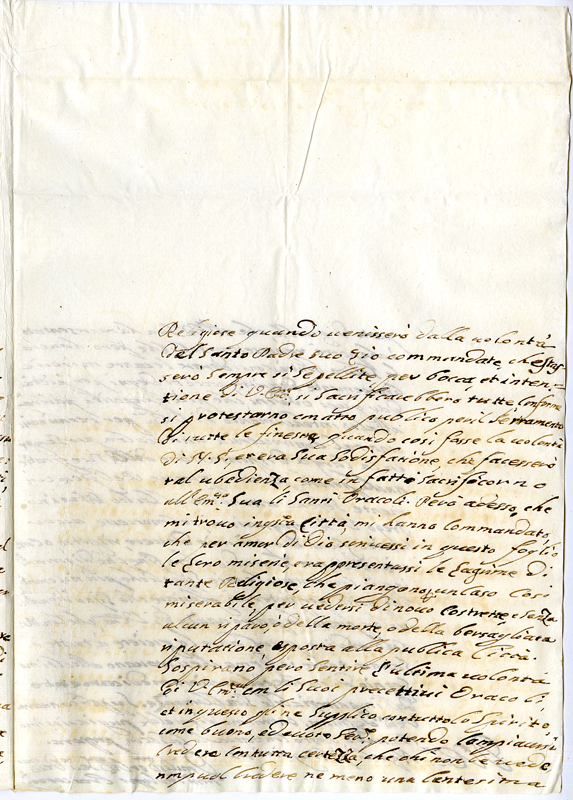 Religiose quando venissero dalla volontà
dal Santo Padre suo Zio commandate, che stas
sero sempre si sepellite, per bocca, et inten¬
tione di V. Em: si sacrificarebbero tutte conforme
si protestorno em atto publico per il serramento
di tutte le finestre, quando così fosse la volontà
di S. S., et era sua sodisfatione, che facessero
tal ubedienza come in fatto sacrificorno
all'Em: Sua li Santi Oracoli. Però adesso, che
mi trovo in q:sta Città, mi hanno commandato,
che per amor di Dio scrivessi in questo fogli
le loro miserie, rappresentassi le lagrime di
tante Religiose, che piangono un caso così
miserabile, per vedersi di novo costrette senza
alcun riparo della morte, o della bersagliata
riputatione esposta alla publica Città.
Sospirano però sentire l'ultima volontà
di V. Em: em li suoi precettivi Oracoli,
et in questo gli ne suplico con tutto lo spirito,
come buono, ed devoto Ser: potendo
credere con tutta certezza, che chi non le vede
non puol credere ne meno una centesima